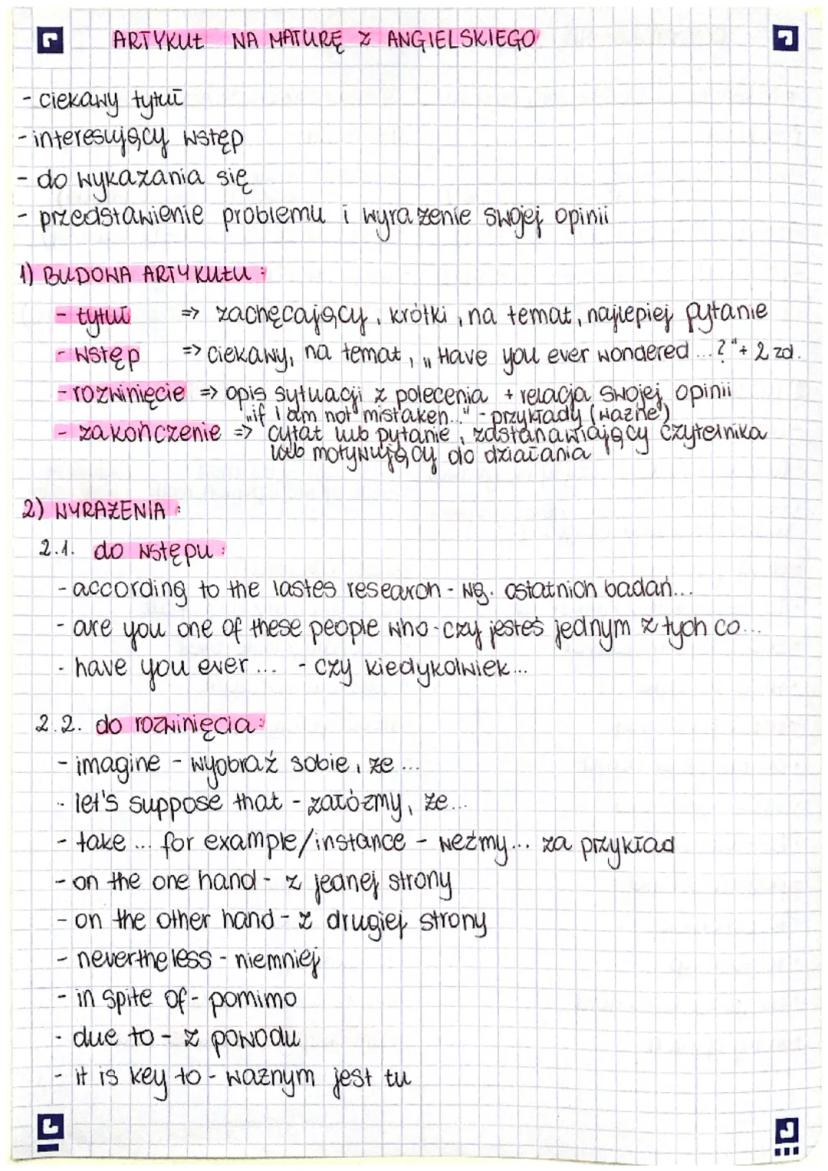 ARTYKUŁ NA MATURĘ Z ANGIELSKIEGO
- ciekawy tytuł
- interesujący wstęp
- do wykazania się
- przedstawienie problemu i wyrażenie swojej opinii
1) BUDOWA ARTYKUŁU:
- tytuł => zachęcający, krótki, na temat, najlepiej pytanie
- wstęp => ciekawy, na temat, „Have you ever wondered ...?"+ 2 zd.
- rozwinięcie => opis sytuacji z polecenia + relacja swojej opinii
„if I am not mistaken..." - przykłady (ważne)
- zakończenie => cytat lub pytanie, zastanawiający czytelnika
lub motywujący do działania
2) WYRAŻENIA:
2.1. do wstępu:
- according to the lastes research - wg. ostatnich badań...
- are you one of these people who - czy jesteś jednym z tych co...
- have you ever ... - czy kiedykolwiek...
2.2. do rozwinięcia:
- imagine - wyobraź sobie, że ...
- let's suppose that - załóżmy, że...
- take ... for example/instance - weźmy... za przykład
- on the one hand - z jednej strony
- on the other hand - z drugiej strony
- nevertheless - niemniej
- in spite of - pomimo
- due to - z powodu
- it is key to - ważnym jest tu